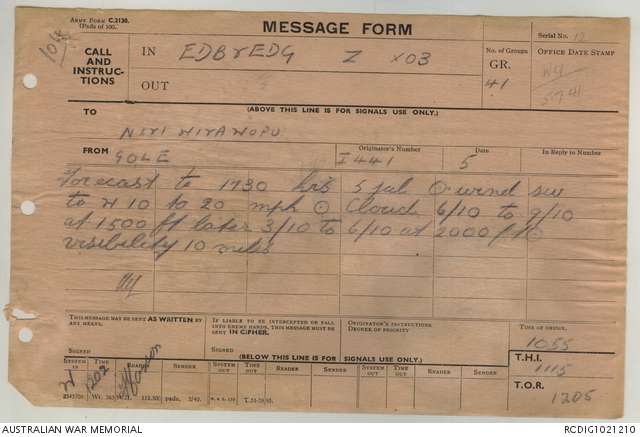 ARMY FORM C.2136.
(Pads of 100).
MESSAGE FORM
Serial No. 12
CALL
AND
INSTRUC-
TIONS
IN EDBYEDG Z X03
OUT
No. of Groups
GR.
41
OFFICE DATE STAMP
(ABOVE THIS LINE IS FOR SIGNALS USE ONLY.)
TO
FROM GOLE
Originator's Number
I441
Date
5
In Reply to Number
Forecast to 1730 hrs 5 Jul ⊙ wind sw
to W 10 to 20 mph ⊙ Cloud 6/10 to 9/10
at 1500 ft later 3/10 to 6/10 at 2000 ft ⊙
visibility 10 miles
THIS MESSAGE MAY BE SENT AS WRITTEN BY
ANY MEANS.
SIGNED
IF LIABLE TO BE INTERCEPTED OR FALL
INTO ENEMY HANDS, THIS MESSAGE MUST BE
SENT IN CIPHER.
SIGNED
ORIGINATOR'S INSTRUCTIONS
DEGREE OF PRIORITY
TIME OF ORIGIN.
1055
(BELOW THIS LINE IS FOR SIGNALS USE ONLY.)
T.H.I.
1115
SYSTEM IN
TIME IN
READER
SENDER
SYSTEM OUT
TIME OUT
READER
SENDER
SYSTEM OUT
TIME OUT
READER
SENDER
T.O.R.
1205
W 1202
AUSTRALIAN WAR MEMORIAL
RCDIG1021210